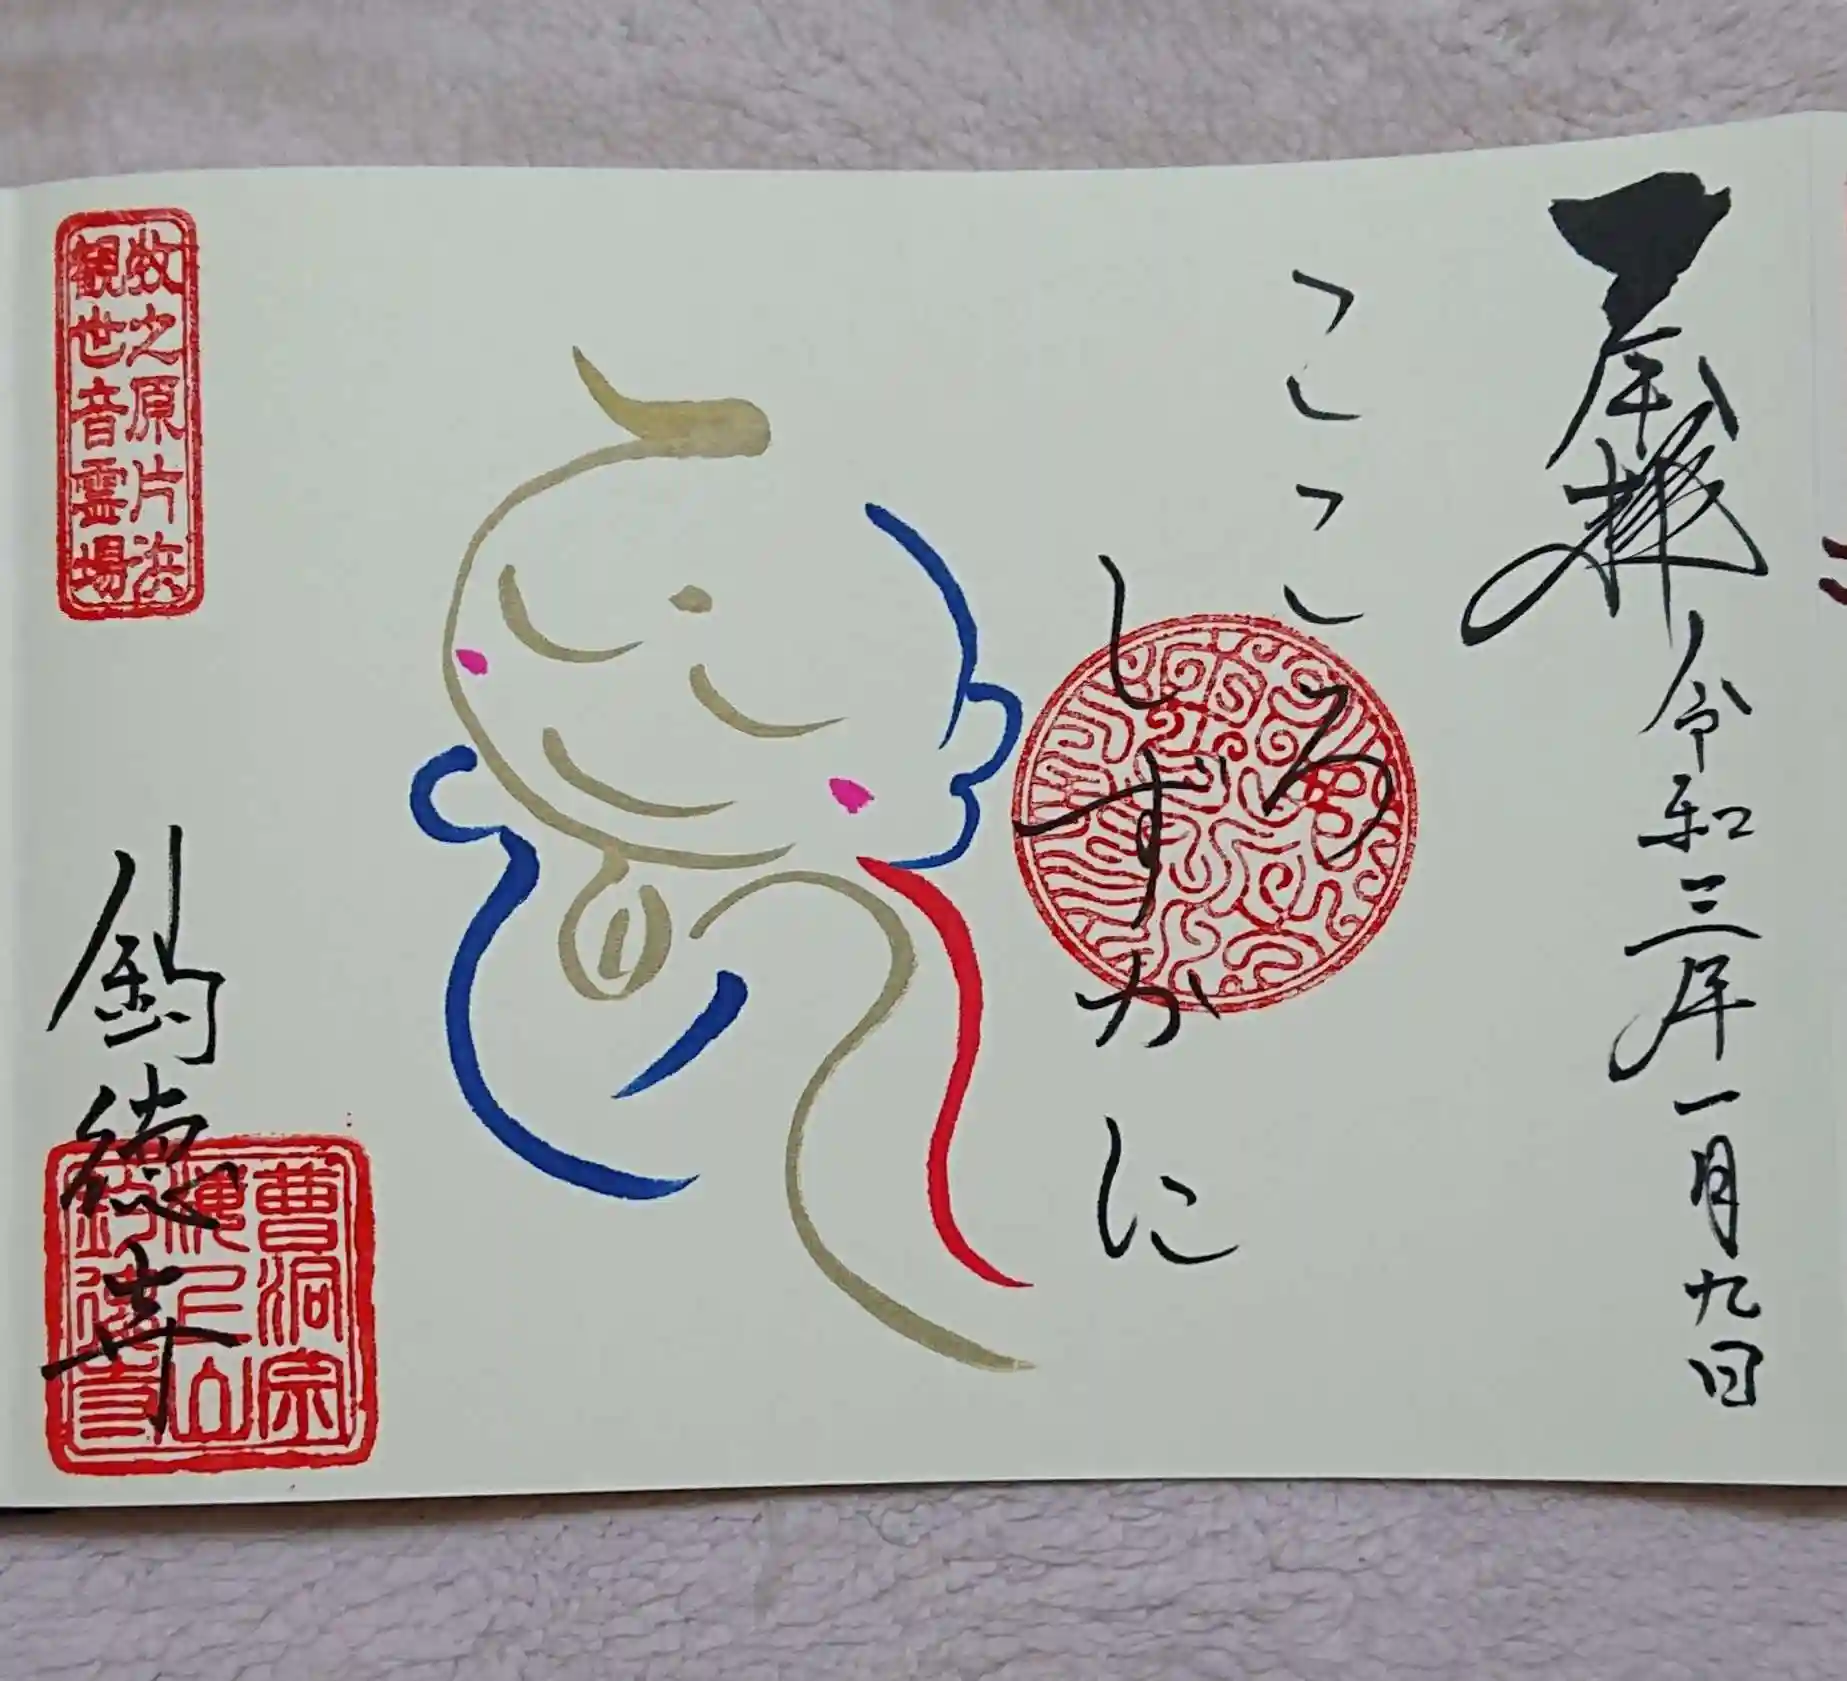 奉拝
令和三年一月九日
こころ
しずかに
牧之原片浜
観世音霊場
釣徳寺
曹洞宗
釣徳寺